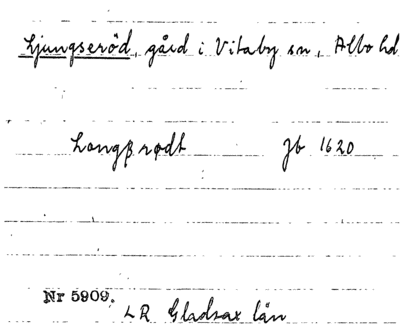 Ljungseröd, gård i Vitaby sn, Albo hd
Longβrødt Jb 1620
Nr 5909.
LR Gladsax län